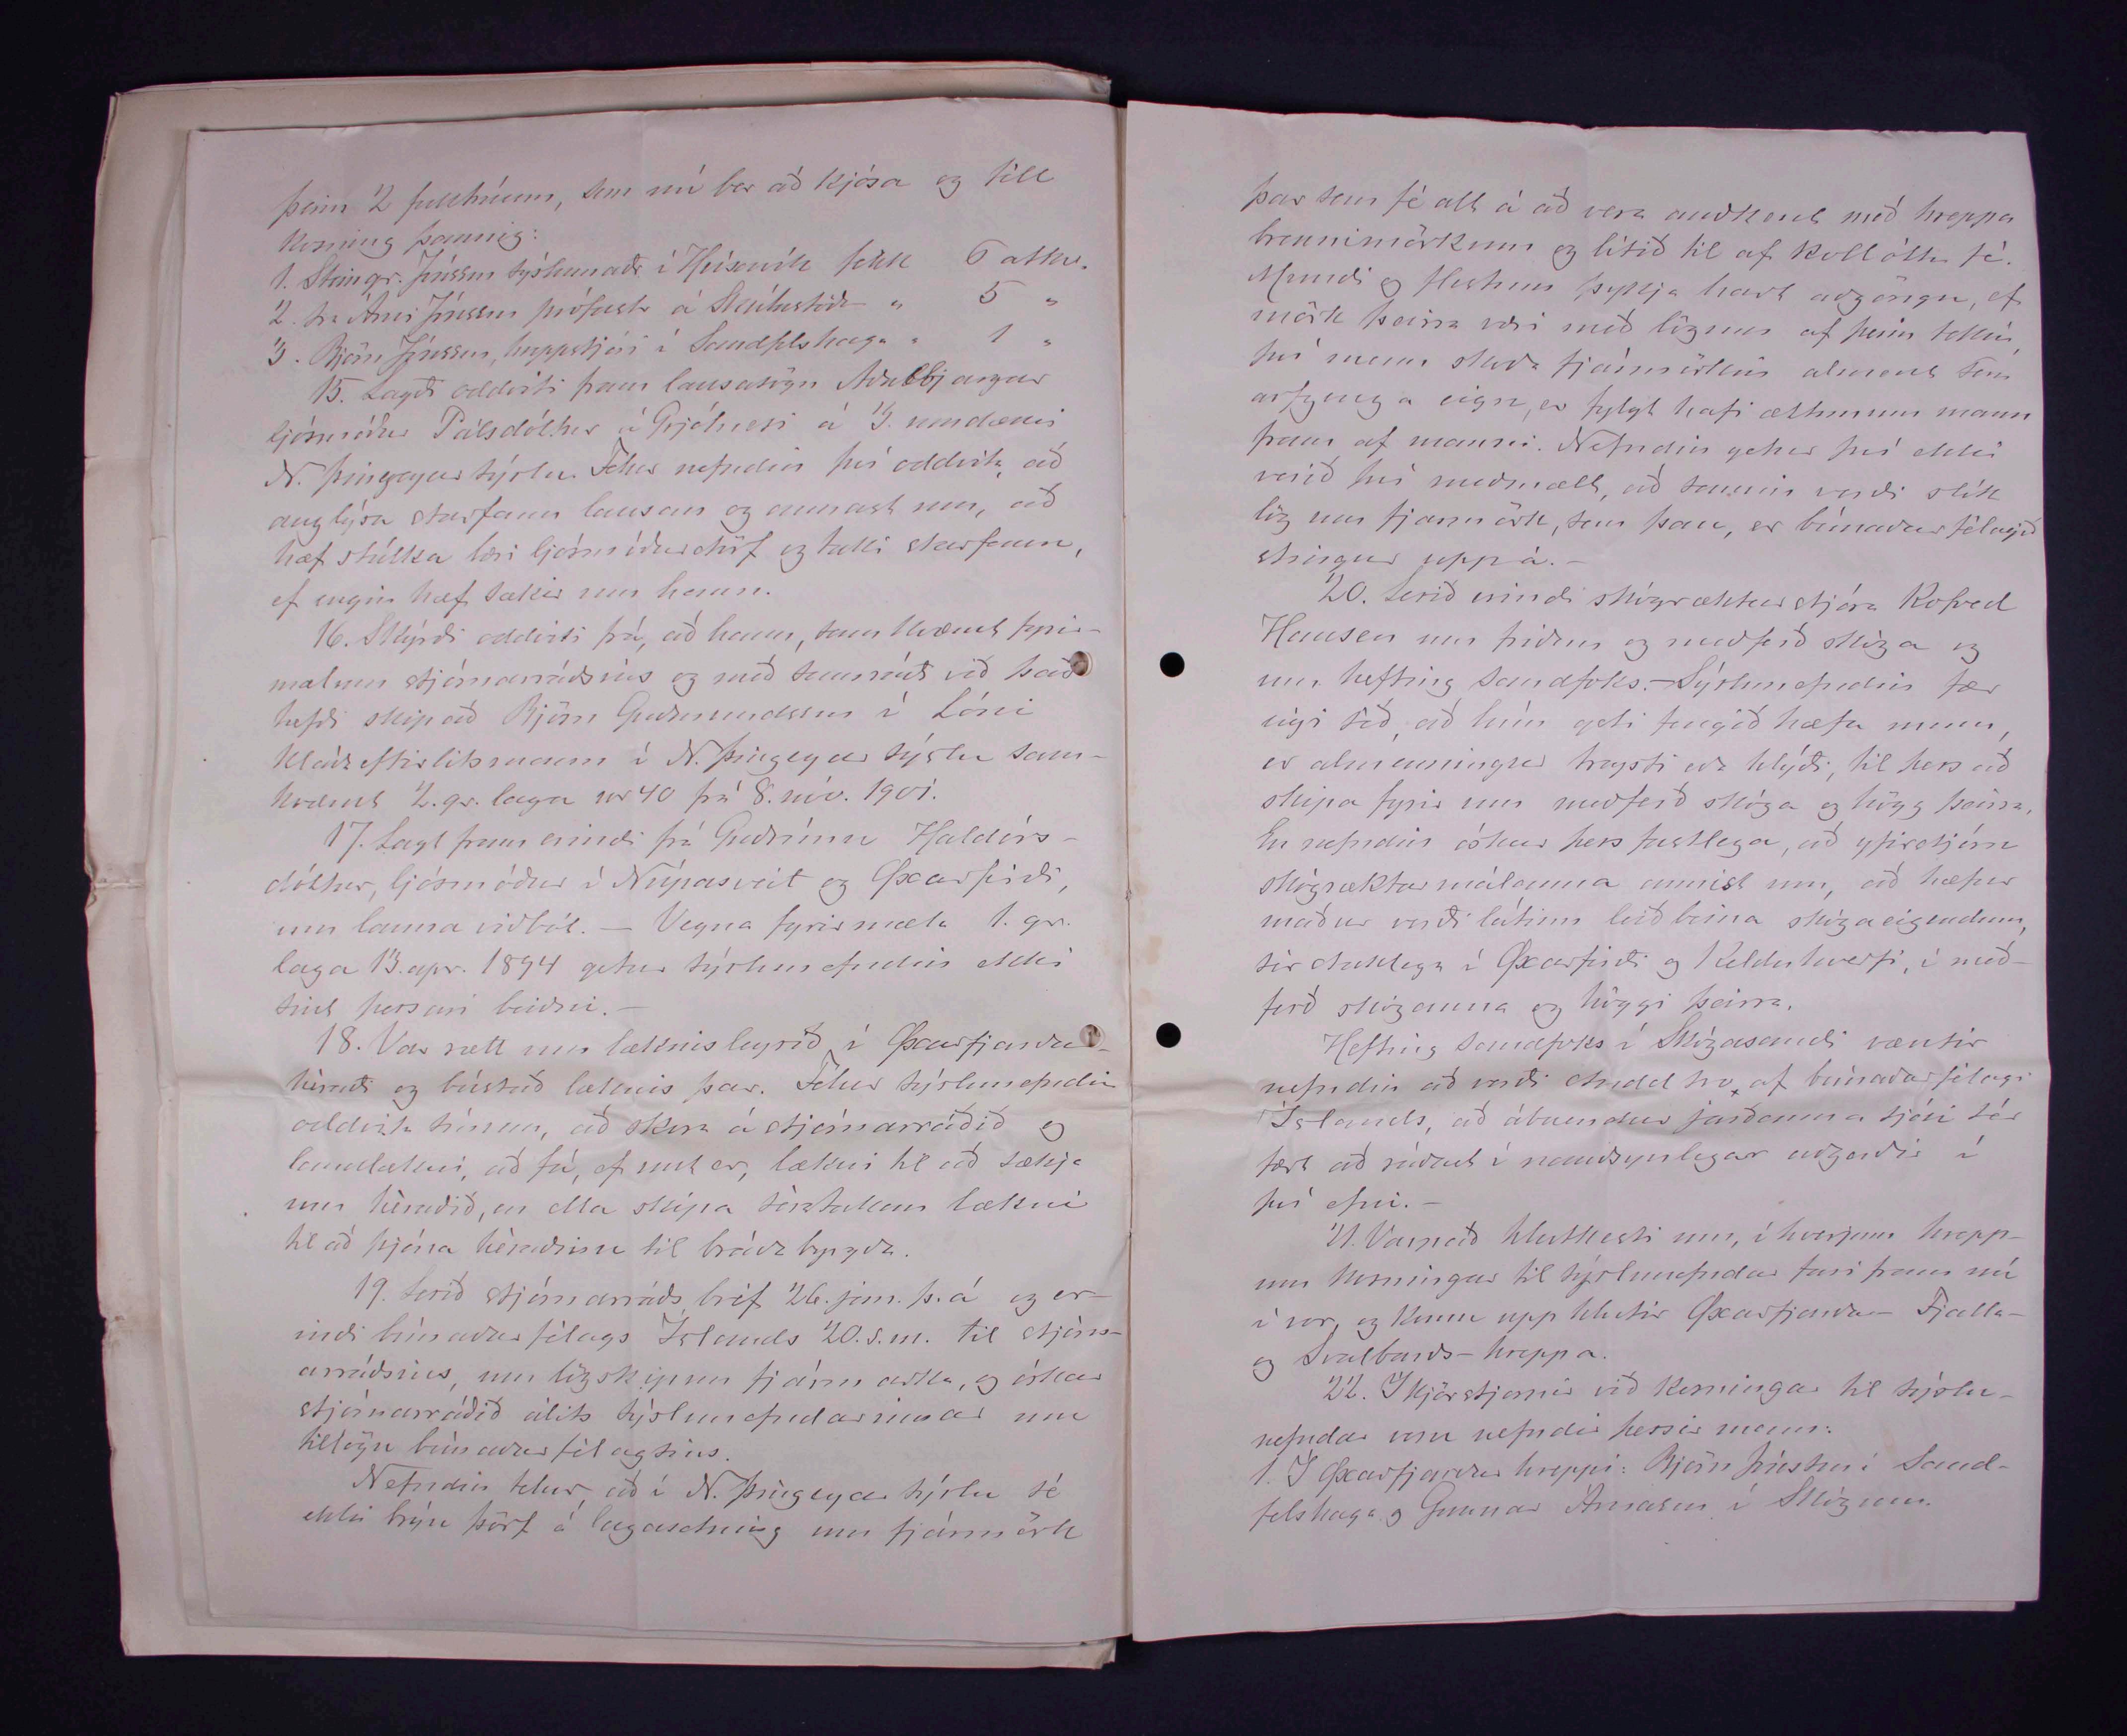 þeim 2 fulltrúum, sem nú ber að kjósa og féll
kosning þannig:
1. Steingr. Jónsson sýslumaðr í Húsavík fékk 6 atkv.
2. Sra Árni Jónsson prófastr á Skútustöð. " 5 "
3. Björn Jónsson, hreppstjóri í Sandfellshaga " 1 "
15. Lagði oddviti fram lausasögn Aðalbjargar
ljósmóður Pálsdóttur á Grjótnesi á 3. umdæmi
N. þingeyjar sýslu. Felur nefndin því oddvita að
auglýsa starfann lausan og annast um, að
hæf stúlka læri ljósmóðurstörf og taki starfann,
ef engin hæf sækir um hann.
16. Skýrði oddviti frá, að hann, samkvæmt fyrir-
mælum stjórnarráðsins og með samráði við það
hefði skipað Björn Guðmundsson í Lóni
kláðaeftirlitsmann í N. þingeyar sýslu sam-
kvæmt 2. gr. laga nr 40 frá 8. nóv. 1901.
17. Lagt fram erindi frá Guðrúnu Haldórs-
dóttur, ljósmóður í Núpasveit og Øxarfirði,
um launa viðbót. — Vegna fyrirmæla 1. gr.
laga 13. apr. 1894 getur sýslunefndin ekki
sint þessari beiðni. —
18. Var rætt um læknisleysið í Øxarfjarðar-
héraði og bústað læknis þar. Felur sýslunefndin
oddvita sínum, að skora á stjórnarráðið og
landlækni, að fá, ef unt er, lækni til að sækja
um héraðið, en ella skipa sérstakan lækni
til að þjóna héraðinu til bráðabyrgða.
19. Lesið stjórnarráðs bréf 26. jan. þ. á og er-
indi búnaðarfélags Íslands 20. s. m. til stjórn-
arráðsins, um lögskipun fjármarka, og óskar
stjórnarráðið álits sýslunefndarinnar um
tillögu búnaðarfélagsins.
Nefndin telur, að í N. Þingeyar sýslu sé
ekki brýn þörf á lagasetning um fjármörk
þar sem fé alt á að vera auðkent með hreppa
brennimörkum og lítið til af kollóttu fé.
Mundi og flestum þykja hart aðgöngu, ef
mörk þeirra væri með lögum af þeim tekin,
því menn skoða fjármörkin alment sem
arfgenga eign, er fylgt hafi ættunum mann
fram af manni. Nefndin getur því ekki
verið því meðmælt, að samin verði slík
lög um fjármörk, sem þau, er búnaðarfélagið
stingur uppá. —
20. Lesið erindi skógræktarstjóra Kofoed
Hansen um friðun og meðferð skóga og
um hefting sandfoks. — Sýslunefndin fær
eigi séð, að hún geti fengið hæfa menn,
er almenningur treysti eða hlýði, til þess að
skipa fyrir um meðferð skóga og högg þeirra.
En nefndin óskar þess fastlega, að yfirstjórn
skógræktarmálanna annist um, að hæfur
maður verði látinn leiðbeina skógaeigendum,
sérstaklega í Øxarfirði og Kelduhverfi, í með-
ferð skóganna og höggi þeirra.
Hefting sandfoks í Skógasandi væntir
nefndin að verði studd svo af búnaðarfélagi
Íslands, að ábúendur jarðanna sjái sér
fært að ráðast í nauðsynlegar aðgerðir í
því efni. —
21. Varpað hlutkesti um, í hverjum hrepp-
um kosningar til sýslunefndar fari fram nú
í vor, og komu upp hlutir Øxarfjarðar- Fjalla-
og Svalbarðs-hreppa.
22. Í kjörstjórnir við kosningar til sýslu-
nefndar voru nefndir þessir menn:
1. Í Øxarfjarðar hreppi: Björn Jónsson í Sand-
fellshaga og Gunnar Árnason í Skógum.